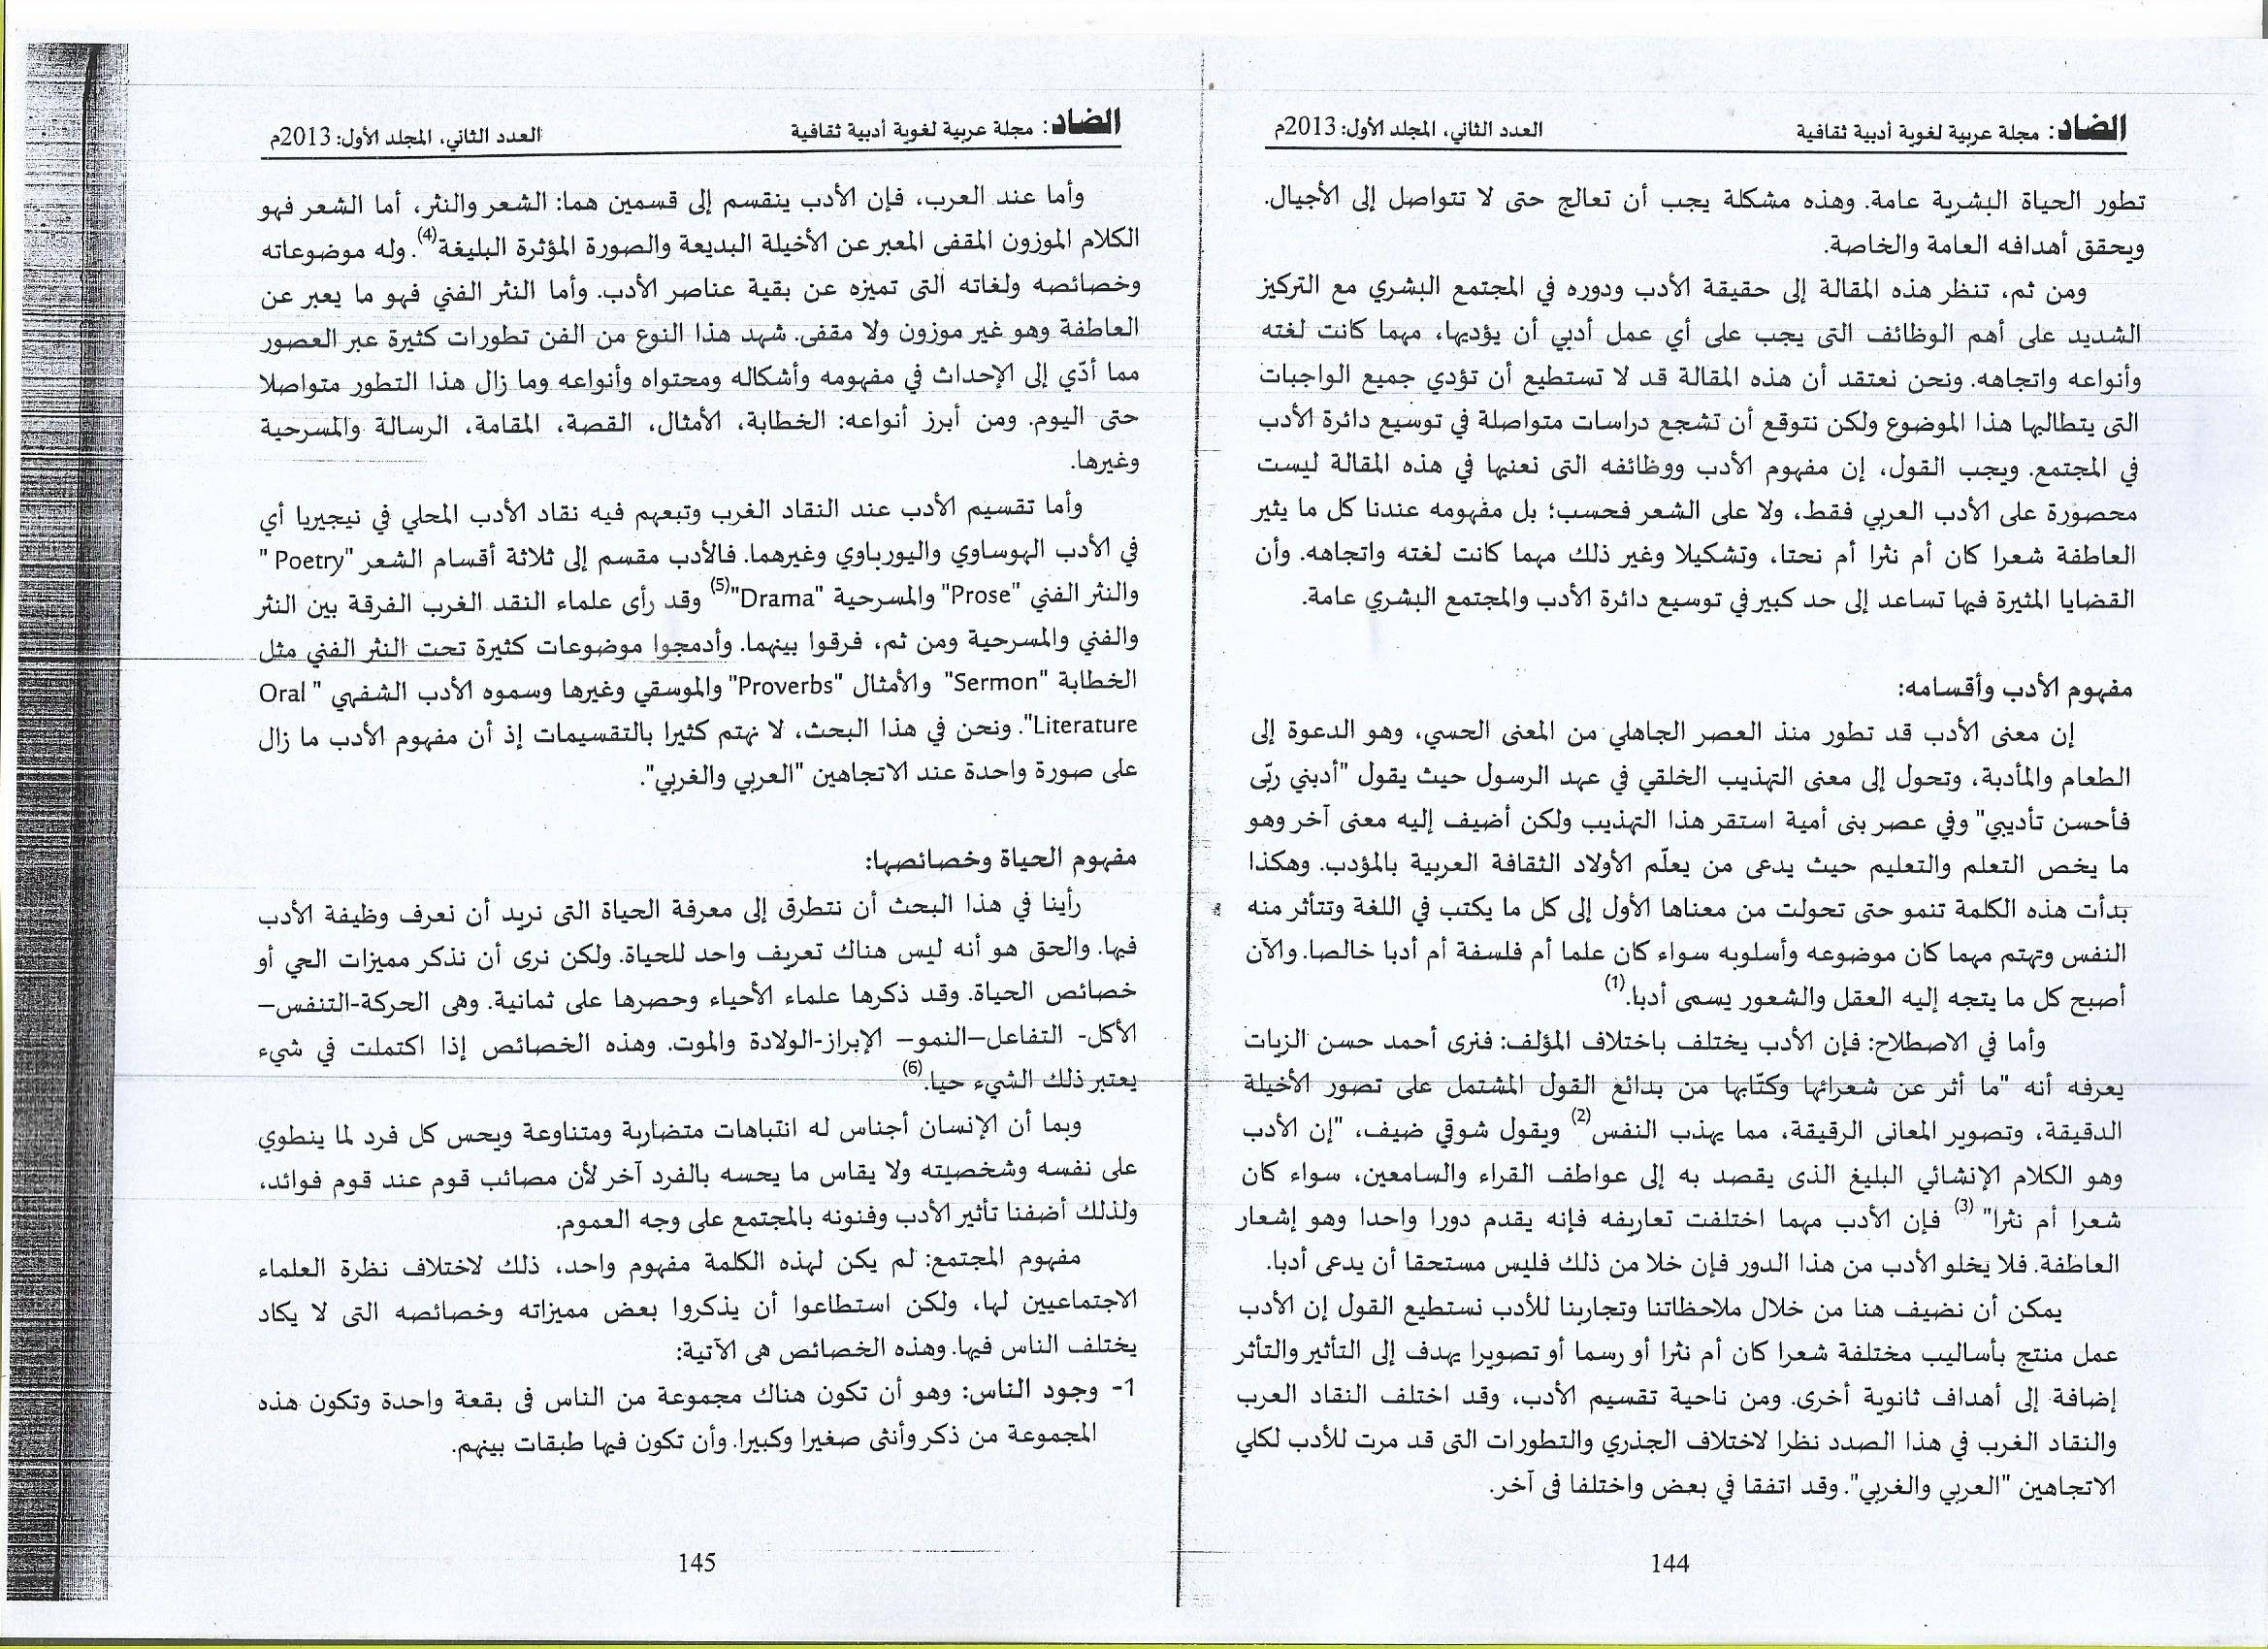 الضاد: مجلة عربية لغوية أدبية ثقافية العدد الثاني، المجلد الأول: 2013م
تطور الحياة البشرية عامة. وهذه مشكلة يجب أن تعالج حتى لا تتواصل إلى الأجيال.
ويحقق أهدافه العامة والخاصة.
ومن ثم، تنظر هذه المقالة إلى حقيقة الأدب ودوره في المجتمع البشري مع التركيز
الشديد على أهم الوظائف التى يجب على أي عمل أدبي أن يؤديها، مهما كانت لغته
وأنواعه واتجاهه. ونحن نعتقد أن هذه المقالة قد لا تستطيع أن تؤدي جميع الواجبات
التى يتطالبها هذا الموضوع ولكن نتوقع أن تشجع دراسات متواصلة في توسيع دائرة الأدب
في المجتمع. ويجب القول، إن مفهوم الأدب ووظائفه التى نعنيها في هذه المقالة ليست
محصورة على الأدب العربي فقط، ولا على الشعر فحسب؛ بل مفهومه عندنا كل ما يثير
العاطفة شعرا كان أم نثرا أم نحتا، وتشكيلا وغير ذلك مهما كانت لغته واتجاهه. وأن
القضايا المثيرة فيها تساعد إلى حد كبير في توسيع دائرة الأدب والمجتمع البشري عامة.
مفهوم الأدب وأقسامه:
إن معنى الأدب قد تطور منذ العصر الجاهلي من المعنى الحسي، وهو الدعوة إلى
الطعام والمأدبة، وتحول إلى معنى التهذيب الخلقي في عهد الرسول حيث يقول "أدبني ربّى
فأحسن تأديبي" وفي عصر بنى أمية استقر هذا التهذيب ولكن أضيف إليه معنى آخر وهو
ما يخص التعلم والتعليم حيث يدعى من يعلّم الأولاد الثقافة العربية بالمؤدب. وهكذا
بدأت هذه الكلمة تنمو حتى تحولت من معناها الأول إلى كل ما يكتب في اللغة وتتأثر منه
النفس وتهتم مهما كان موضوعه وأسلوبه سواء كان علما أم فلسفة أم أدبا خالصا. والآن
أصبح كل ما يتجه إليه العقل والشعور يسمى أدبا.(1)
وأما في الاصطلاح: فإن الأدب يختلف باختلاف المؤلف: فنرى أحمد حسن الزيات
يعرفه أنه "ما أثر عن شعرائها وكتّابها من بدائع القول المشتمل على تصور الأخيلة
الدقيقة، وتصوير المعانى الرقيقة، مما يهذب النفس(2) ويقول شوقي ضيف، "إن الأدب
وهو الكلام الإنشائي البليغ الذى يقصد به إلى عواطف القراء والسامعين، سواء كان
شعرا أم نثرا" (3) فإن الأدب مهما اختلفت تعاريفه فإنه يقدم دورا واحدا وهو إشعار
العاطفة. فلا يخلو الأدب من هذا الدور فإن خلا من ذلك فليس مستحقا أن يدعى أدبا.
يمكن أن نضيف هنا من خلال ملاحظاتنا وتجاربنا للأدب نستطيع القول إن الأدب
عمل منتج بأساليب مختلفة شعرا كان أم نثرا أو رسما أو تصويرا يهدف إلى التأثير والتأثر
إضافة إلى أهداف ثانوية أخرى. ومن ناحية تقسيم الأدب، وقد اختلف النقاد العرب
والنقاد الغرب في هذا الصدد نظرا لاختلاف الجذري والتطورات التى قد مرت للأدب لكلي
الاتجاهين "العربي والغربي". وقد اتفقا في بعض واختلفا فى آخر.
144
الضاد: مجلة عربية لغوية أدبية ثقافية العدد الثاني، المجلد الأول: 2013م
وأما عند العرب، فإن الأدب ينقسم إلى قسمين هما: الشعر والنثر، أما الشعر فهو
الكلام الموزون المقفى المعبر عن الأخيلة البديعة والصورة المؤثرة البليغة(4). وله موضوعاته
وخصائصه ولغاته التى تميزه عن بقية عناصر الأدب. وأما النثر الفني فهو ما يعبر عن
العاطفة وهو غير موزون ولا مقفى. شهد هذا النوع من الفن تطورات كثيرة عبر العصور
مما أدّي إلى الإحداث في مفهومه وأشكاله ومحتواه وأنواعه وما زال هذا التطور متواصلا
حتى اليوم. ومن أبرز أنواعه: الخطابة، الأمثال، القصة، المقامة، الرسالة والمسرحية
وغيرها.
وأما تقسيم الأدب عند النقاد الغرب وتبعهم فيه نقاد الأدب المحلي في نيجيريا أي
في الأدب الهوساوي واليورباوي وغيرهما. فالأدب مقسم إلى ثلاثة أقسام الشعر "Poetry "
والنثر الفني "Prose" والمسرحية "Drama"(5) وقد رأى علماء النقد الغرب الفرقة بين النثر
والفني والمسرحية ومن ثم، فرقوا بينهما. وأدمجوا موضوعات كثيرة تحت النثر الفني مثل
الخطابة "Sermon" والأمثال "Proverbs" والموسقي وغيرها وسموه الأدب الشفهي " Oral
Literature". ونحن في هذا البحث، لا نهتم كثيرا بالتقسيمات إذ أن مفهوم الأدب ما زال
على صورة واحدة عند الاتجاهين "العربي والغربي".
مفهوم الحياة وخصائصها:
رأينا في هذا البحث أن نتطرق إلى معرفة الحياة التى نريد أن نعرف وظيفة الأدب
فيها. والحق هو أنه ليس هناك تعريف واحد للحياة. ولكن نرى أن نذكر مميزات الحي أو
خصائص الحياة. وقد ذكرها علماء الأحياء وحصرها على ثمانية. وهى الحركة-التنفس–
الأكل- التفاعل–النمو– الإبراز-الولادة والموت. وهذه الخصائص إذا اكتملت في شيء
يعتبر ذلك الشيء حيا.(6)
وبما أن الإنسان أجناس له انتباهات متضاربة ومتناوعة ويحس كل فرد لما ينطوي
على نفسه وشخصيته ولا يقاس ما يحسه بالفرد آخر لأن مصائب قوم عند قوم فوائد،
ولذلك أضفنا تأثير الأدب وفنونه بالمجتمع على وجه العموم.
مفهوم المجتمع: لم يكن لهذه الكلمة مفهوم واحد، ذلك لاختلاف نظرة العلماء
الاجتماعيين لها، ولكن استطاعوا أن يذكروا بعض مميزاته وخصائصه التى لا يكاد
يختلف الناس فيها. وهذه الخصائص هى الآتية:
1- وجود الناس: وهو أن تكون هناك مجموعة من الناس فى بقعة واحدة وتكون هذه
المجموعة من ذكر وأنثى صغيرا وكبيرا. وأن تكون فيها طبقات بينهم.
145